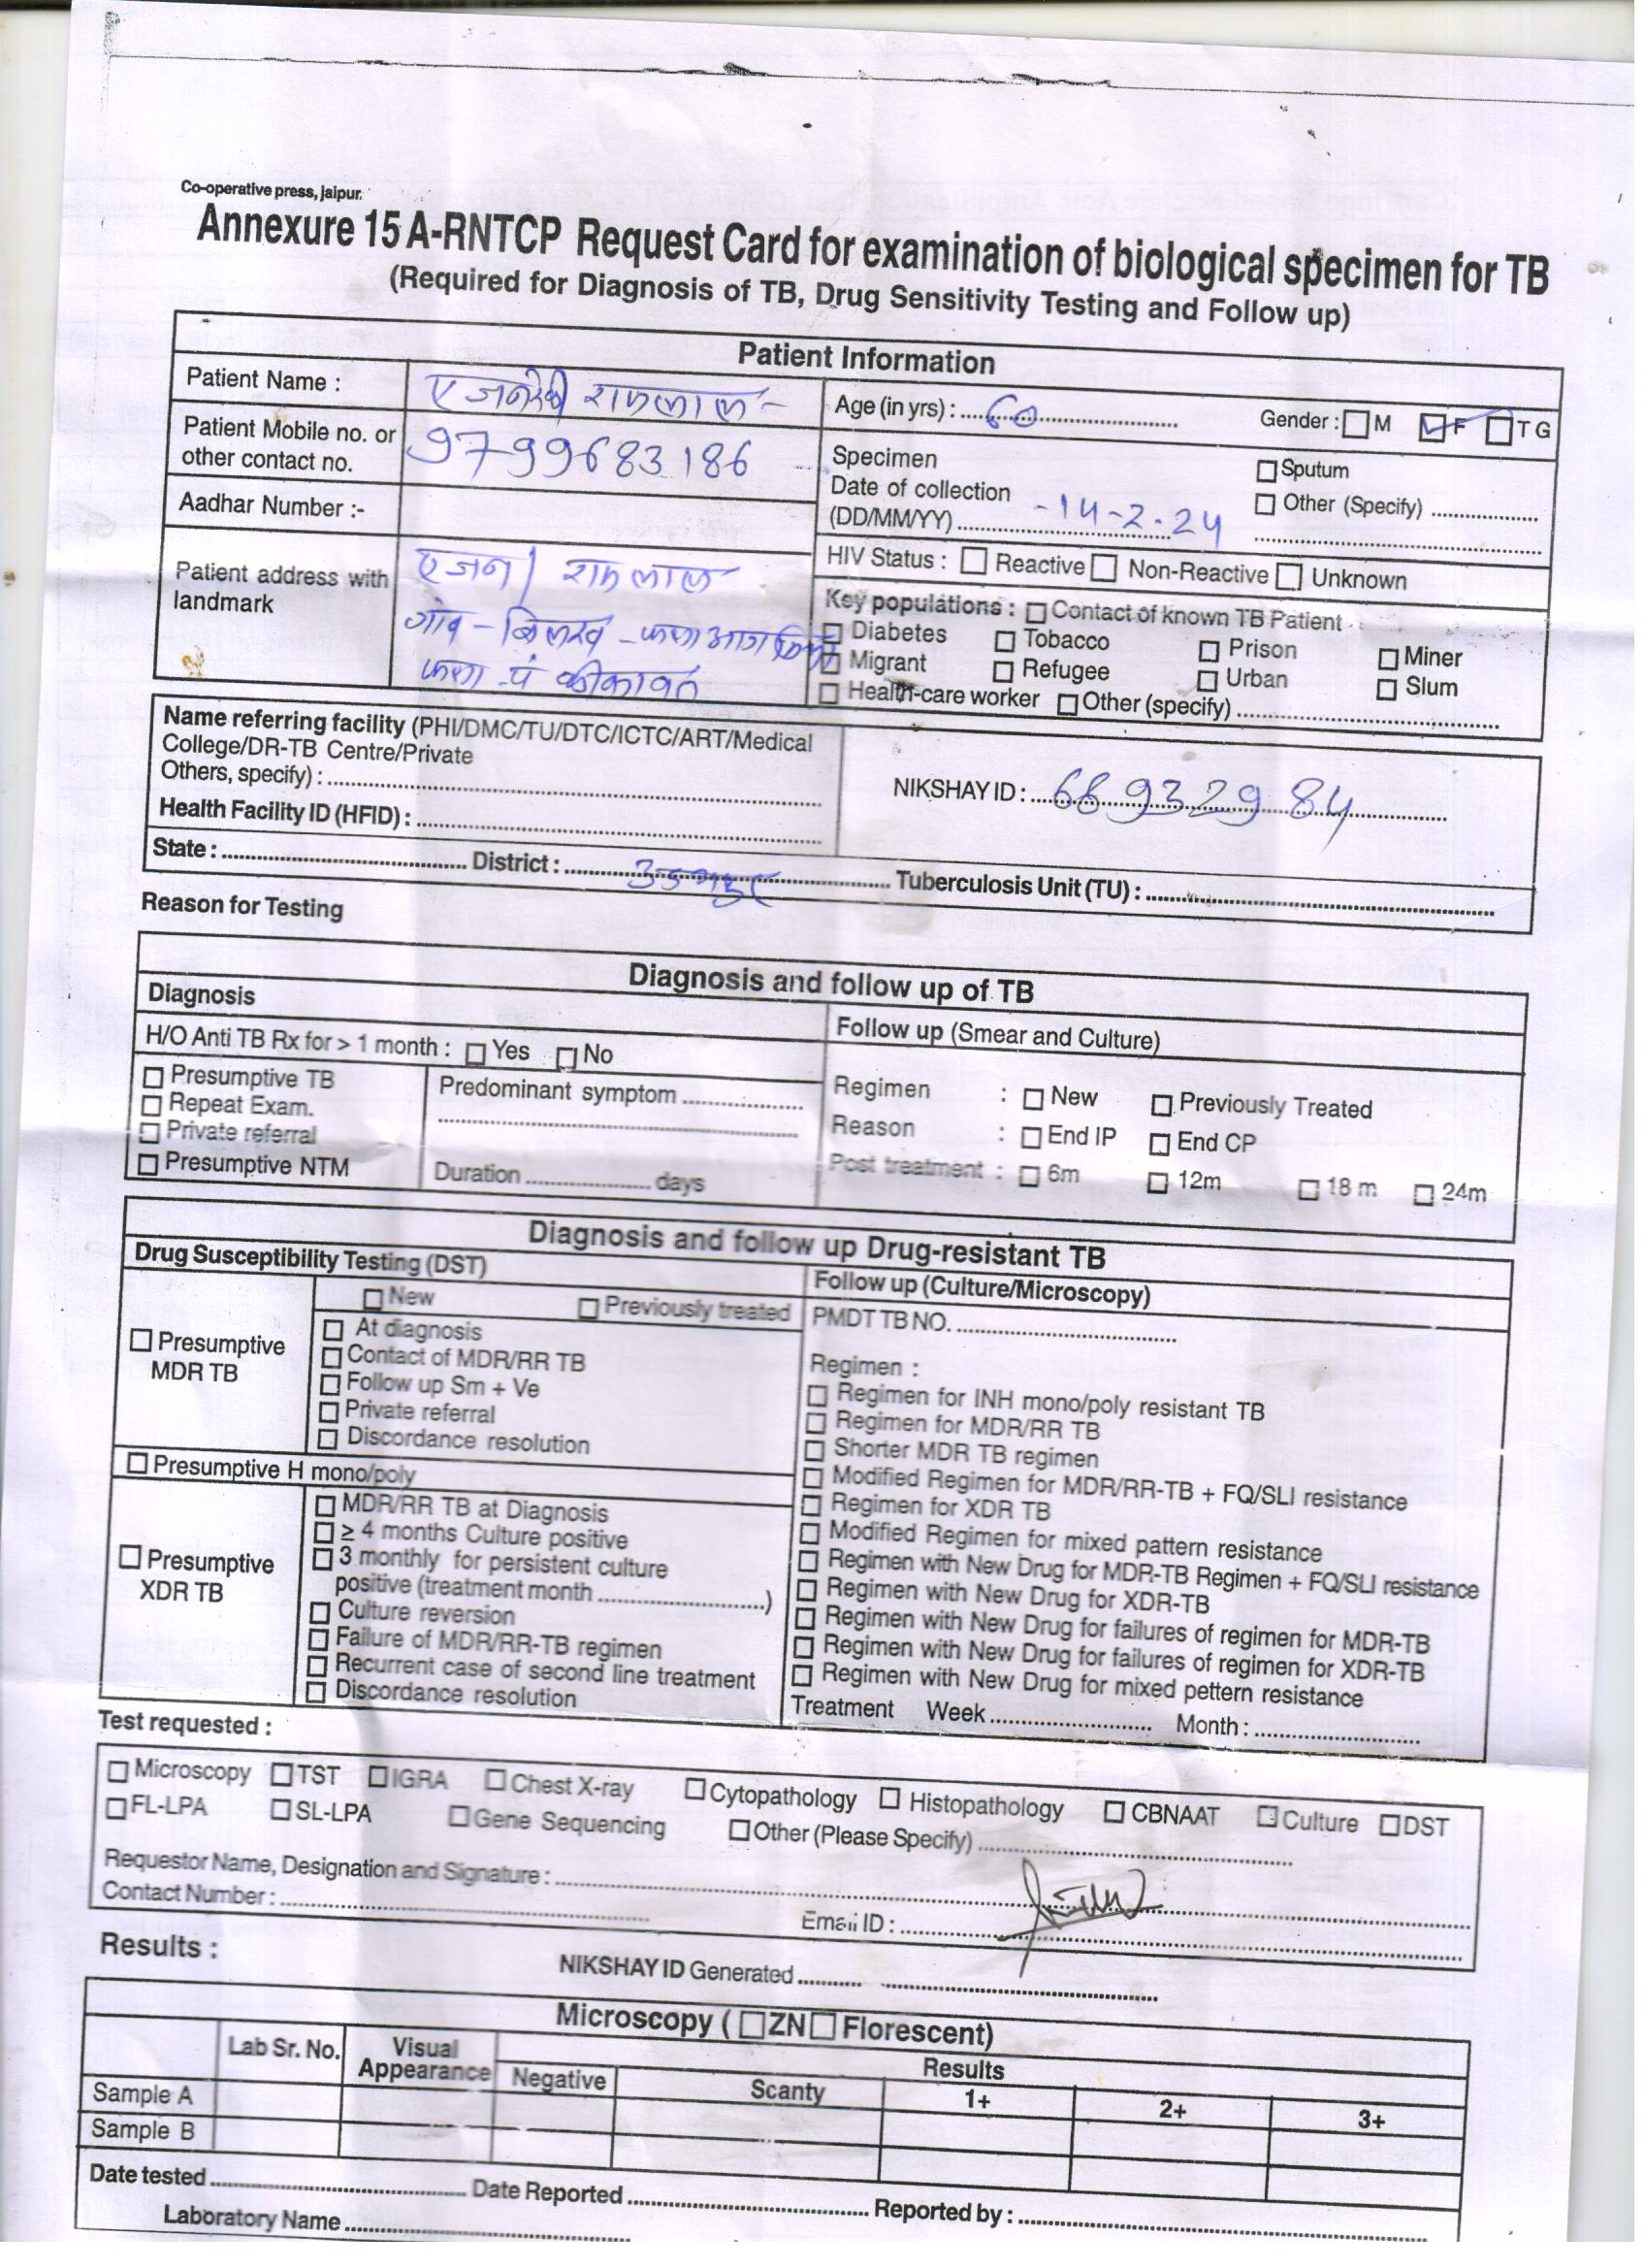 Co-operative press, jaipur.
Annexure 15 A-RNTCP Request Card for examination of biological specimen for TB
(Required for Diagnosis of TB, Drug Sensitivity Testing and Follow up)
Patient Information
Patient Name :
रामलाल
Age (in yrs) : 60
Gender : M F TG
Patient Mobile no. or
other contact no.
9799683186
Specimen
Date of collection
(DD/MM/YY) -14-2-24
Sputum
Other (Specify)
Aadhar Number :-
HIV Status : Reactive Non-Reactive Unknown
Patient address with
landmark
रामलाल
गांव -
Key populations : Contact of known TB Patient
Diabetes Tobacco Prison Miner
Migrant Refugee Urban Slum
Health-care worker Other (specify)
Name referring facility (PHI/DMC/TU/DTC/ICTC/ART/Medical
College/DR-TB Centre/Private
Others, specify) :
NIKSHAY ID : 68932984
Health Facility ID (HFID) :
State : District : Tuberculosis Unit (TU) :
Reason for Testing
Diagnosis and follow up of TB
Diagnosis
Follow up (Smear and Culture)
H/O Anti TB Rx for > 1 month : Yes No
Presumptive TB
Repeat Exam.
Private referral
Presumptive NTM
Predominant symptom
Duration days
Regimen : New Previously Treated
Reason : End IP End CP
Post treatment : 6m 12m 18 m 24m
Diagnosis and follow up Drug-resistant TB
Drug Susceptibility Testing (DST)
Follow up (Culture/Microscopy)
New Previously treated
PMDT TB NO.
Presumptive
MDR TB
At diagnosis
Contact of MDR/RR TB
Follow up Sm + Ve
Private referral
Discordance resolution
Presumptive H mono/poly
Presumptive
XDR TB
MDR/RR TB at Diagnosis
≥ 4 months Culture positive
3 monthly for persistent culture
positive (treatment month )
Culture reversion
Failure of MDR/RR-TB regimen
Recurrent case of second line treatment
Discordance resolution
Regimen :
Regimen for INH mono/poly resistant TB
Regimen for MDR/RR TB
Shorter MDR TB regimen
Modified Regimen for MDR/RR-TB + FQ/SLI resistance
Regimen for XDR TB
Modified Regimen for mixed pattern resistance
Regimen with New Drug for MDR-TB Regimen + FQ/SLI resistance
Regimen with New Drug for XDR-TB
Regimen with New Drug for failures of regimen for MDR-TB
Regimen with New Drug for failures of regimen for XDR-TB
Regimen with New Drug for mixed pettern resistance
Treatment Week Month :
Test requested :
Microscopy TST IGRA Chest X-ray Cytopathology Histopathology CBNAAT Culture DST
FL-LPA SL-LPA Gene Sequencing Other (Please Specify)
Requestor Name, Designation and Signature :
Contact Number : Email ID :
Results :
NIKSHAY ID Generated
Microscopy ( ZN Florescent)
Lab Sr. No. Visual
Appearance
Results
Negative Scanty 1+ 2+ 3+
Sample A
Sample B
Date tested Date Reported Reported by :
Laboratory Name